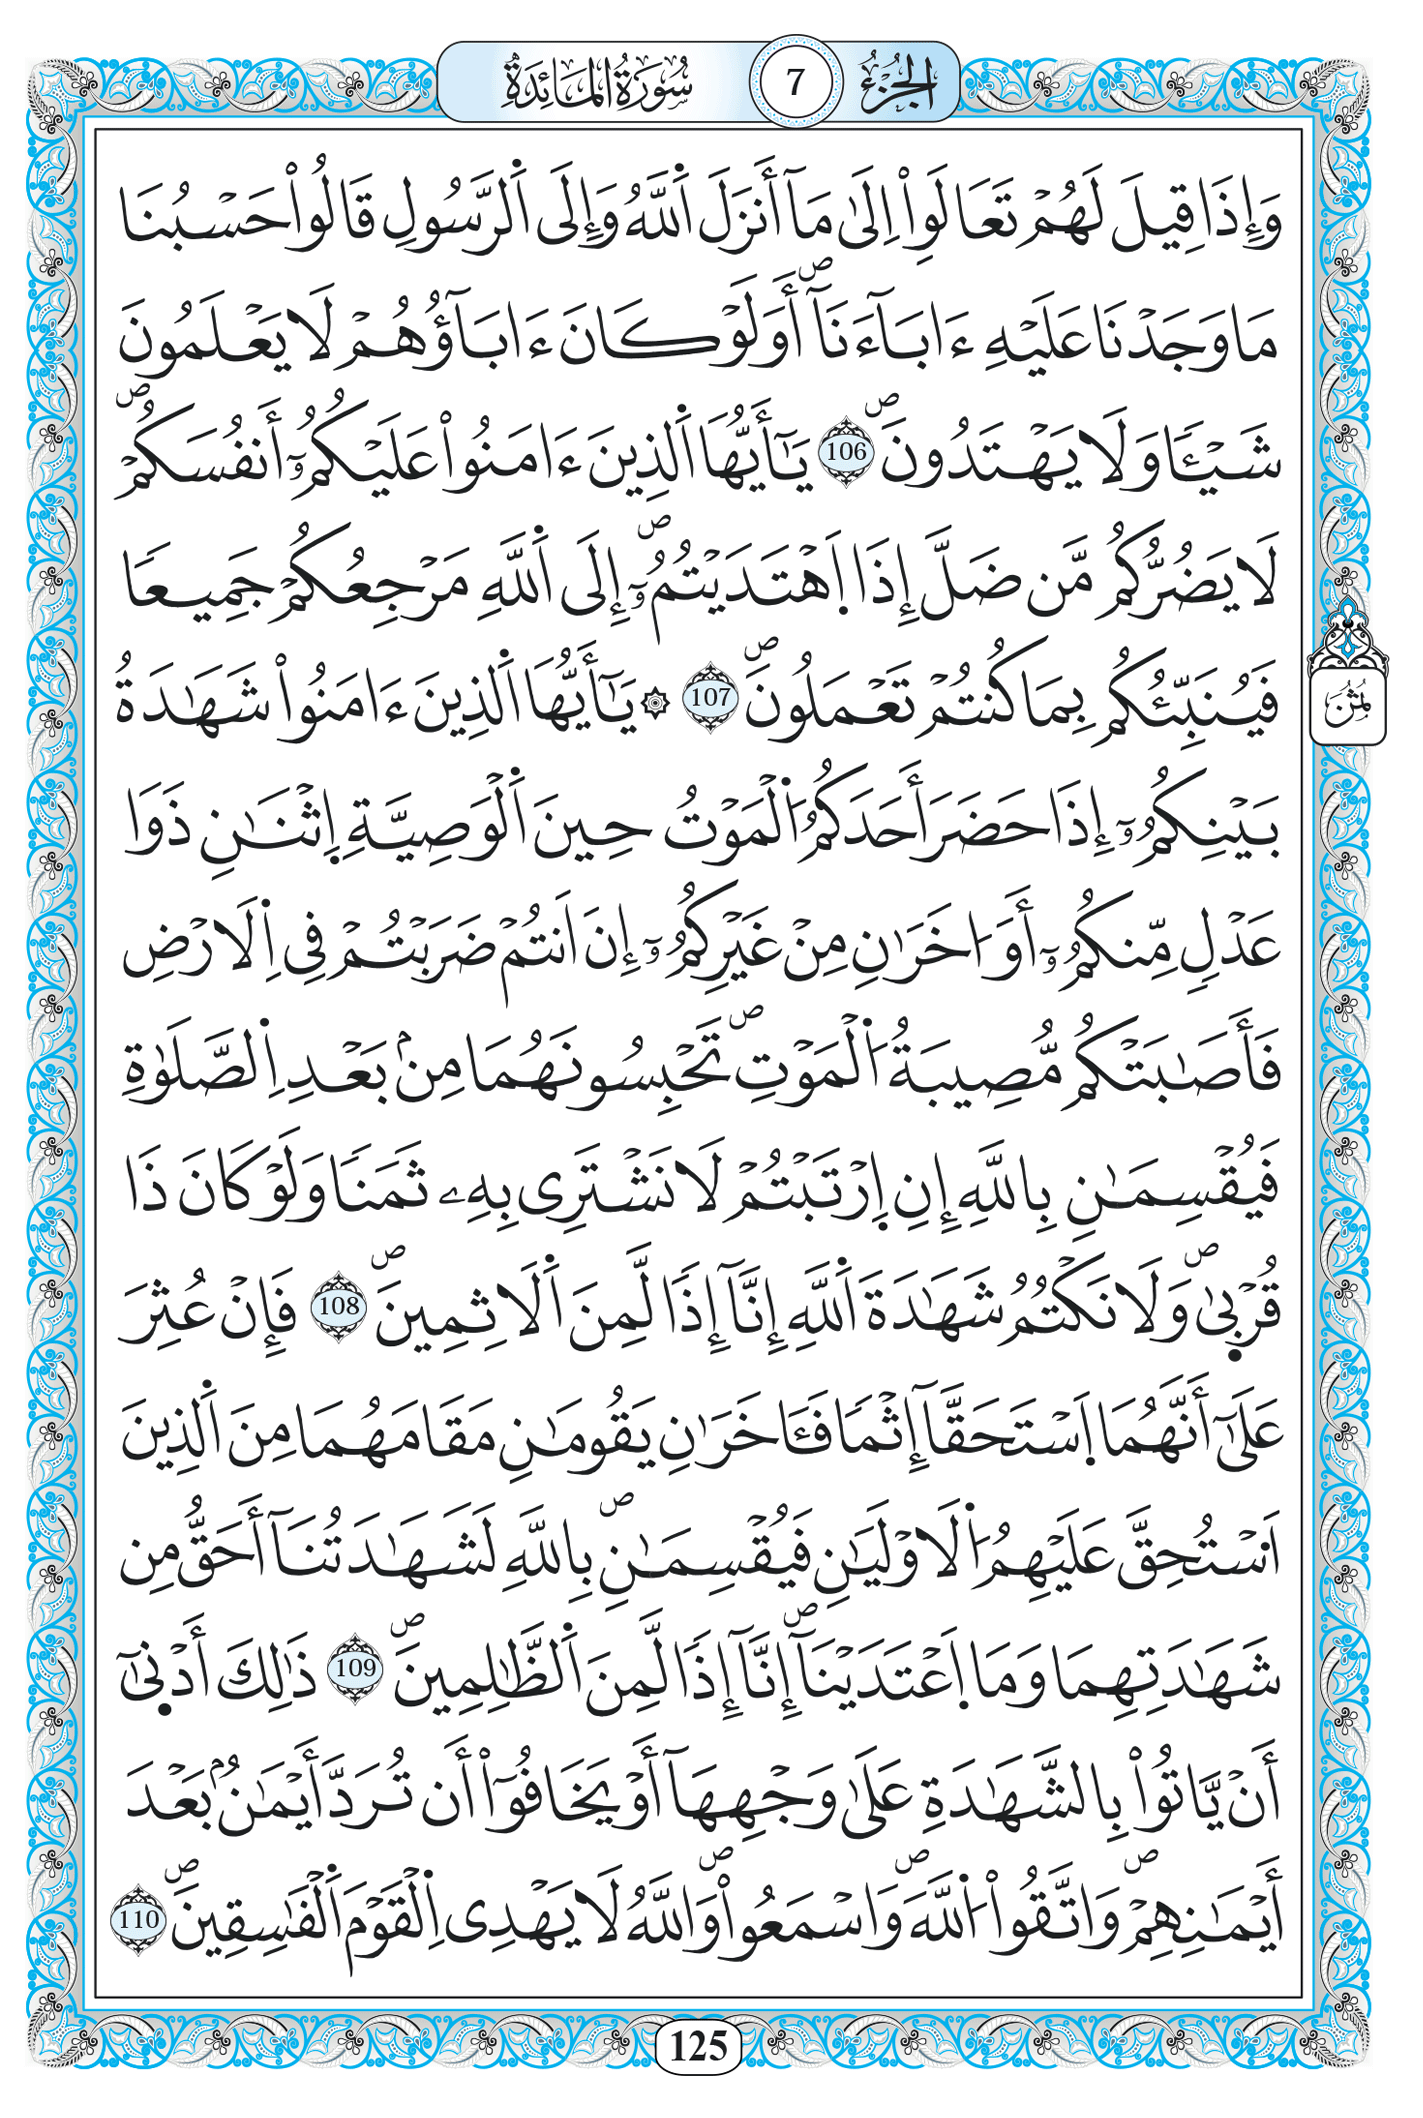 سُورَةُ الْمَائِدَةِ 7 الْجُزْءُ
وَإِذَا قِيلَ لَهُمْ تَعَالَوْاْ اِلَىٰ مَآ أَنزَلَ اَ۬للَّهُ وَإِلَى اَ۬لرَّسُولِ قَالُواْ حَسْبُنَا
مَا وَجَدْنَا عَلَيْهِ ءَابَآءَنَآۖ أَوَلَوْ كَانَ ءَابَآؤُهُمْ لَا يَعْلَمُونَ
شَيْـٔاٗ وَلَا يَهْتَدُونَۖ 106 يَٰٓأَيُّهَا اَ۬لذِينَ ءَامَنُواْ عَلَيْكُمُۥٓ أَنفُسَكُمْۖ
لَا يَضُرُّكُم مَّن ضَلَّ إِذَا اَ۪هْتَدَيْتُمُۥٓۖ إِلَى اَ۬للَّهِ مَرْجِعُكُمْ جَمِيعاٗ
فَيُنَبِّئُكُم بِمَا كُنتُمْ تَعْمَلُونَۖ 107 ۞ يَٰٓأَيُّهَا اَ۬لذِينَ ءَامَنُواْ شَهَٰدَةُ
ثُمُن
بَيْنِكُمُۥٓ إِذَا حَضَرَ أَحَدَكُمُ اُ۬لْمَوْتُ حِينَ اَ۬لْوَصِيَّةِ اِ۪ثْنَٰنِ ذَوَا
عَدْلٖ مِّنكُمُۥٓ أَوَ اٰخَرَٰنِ مِنْ غَيْرِكُمُۥٓ إِنَ اَنتُمْ ضَرَبْتُمْ فِي اِ۬لَارْضِ
فَأَصَٰبَتْكُم مُّصِيبَةُ اُ۬لْمَوْتِۖ تَحْبِسُونَهُمَا مِنۢ بَعْدِ اِ۬لصَّلَوٰةِ
فَيُقْسِمَٰنِ بِاللَّهِ إِنِ اِ۪رْتَبْتُمْ لَا نَشْتَرِي بِهِۦ ثَمَناٗ وَلَوْ كَانَ ذَا
قُرْب۪ىٰۖ وَلَا نَكْتُمُ شَهَٰدَةَ اَ۬للَّهِ إِنَّآ إِذاٗ لَّمِنَ اَ۬لَاثِمِينَۖ 108 فَإِنْ عُثِرَ
عَلَىٰٓ أَنَّهُمَا اَ۪سْتَحَقَّآ إِثْماٗ فَـَٔاخَرَٰنِ يَقُومَٰنِ مَقَامَهُمَا مِنَ اَ۬لذِينَ
اَ۟سْتُحِقَّ عَلَيْهِمُ اُ۬لَاوْلَيَٰنِ فَيُقْسِمَٰنِۖ بِاللَّهِ لَشَهَٰدَتُنَآ أَحَقُّ مِن
شَهَٰدَتِهِمَا وَمَا اَ۪عْتَدَيْنَآۖ إِنَّآ إِذاٗ لَّمِنَ اَ۬لظَّٰلِمِينَۖ 109 ذَٰلِكَ أَدْن۪ىٰٓ
أَنْ يَّاتُواْ بِالشَّهَٰدَةِ عَلَىٰ وَجْهِهَآ أَوْ يَخَافُوٓاْ أَن تُرَدَّ أَيْمَٰنُۢ بَعْدَ
أَيْمَٰنِهِمْۖ وَاتَّقُواْ اُ۬للَّهَۖ وَاسْمَعُواْۖ وَاللَّهُ لَا يَهْدِي اِ۬لْقَوْمَ اَ۬لْفَٰسِقِينَۖ 110
125